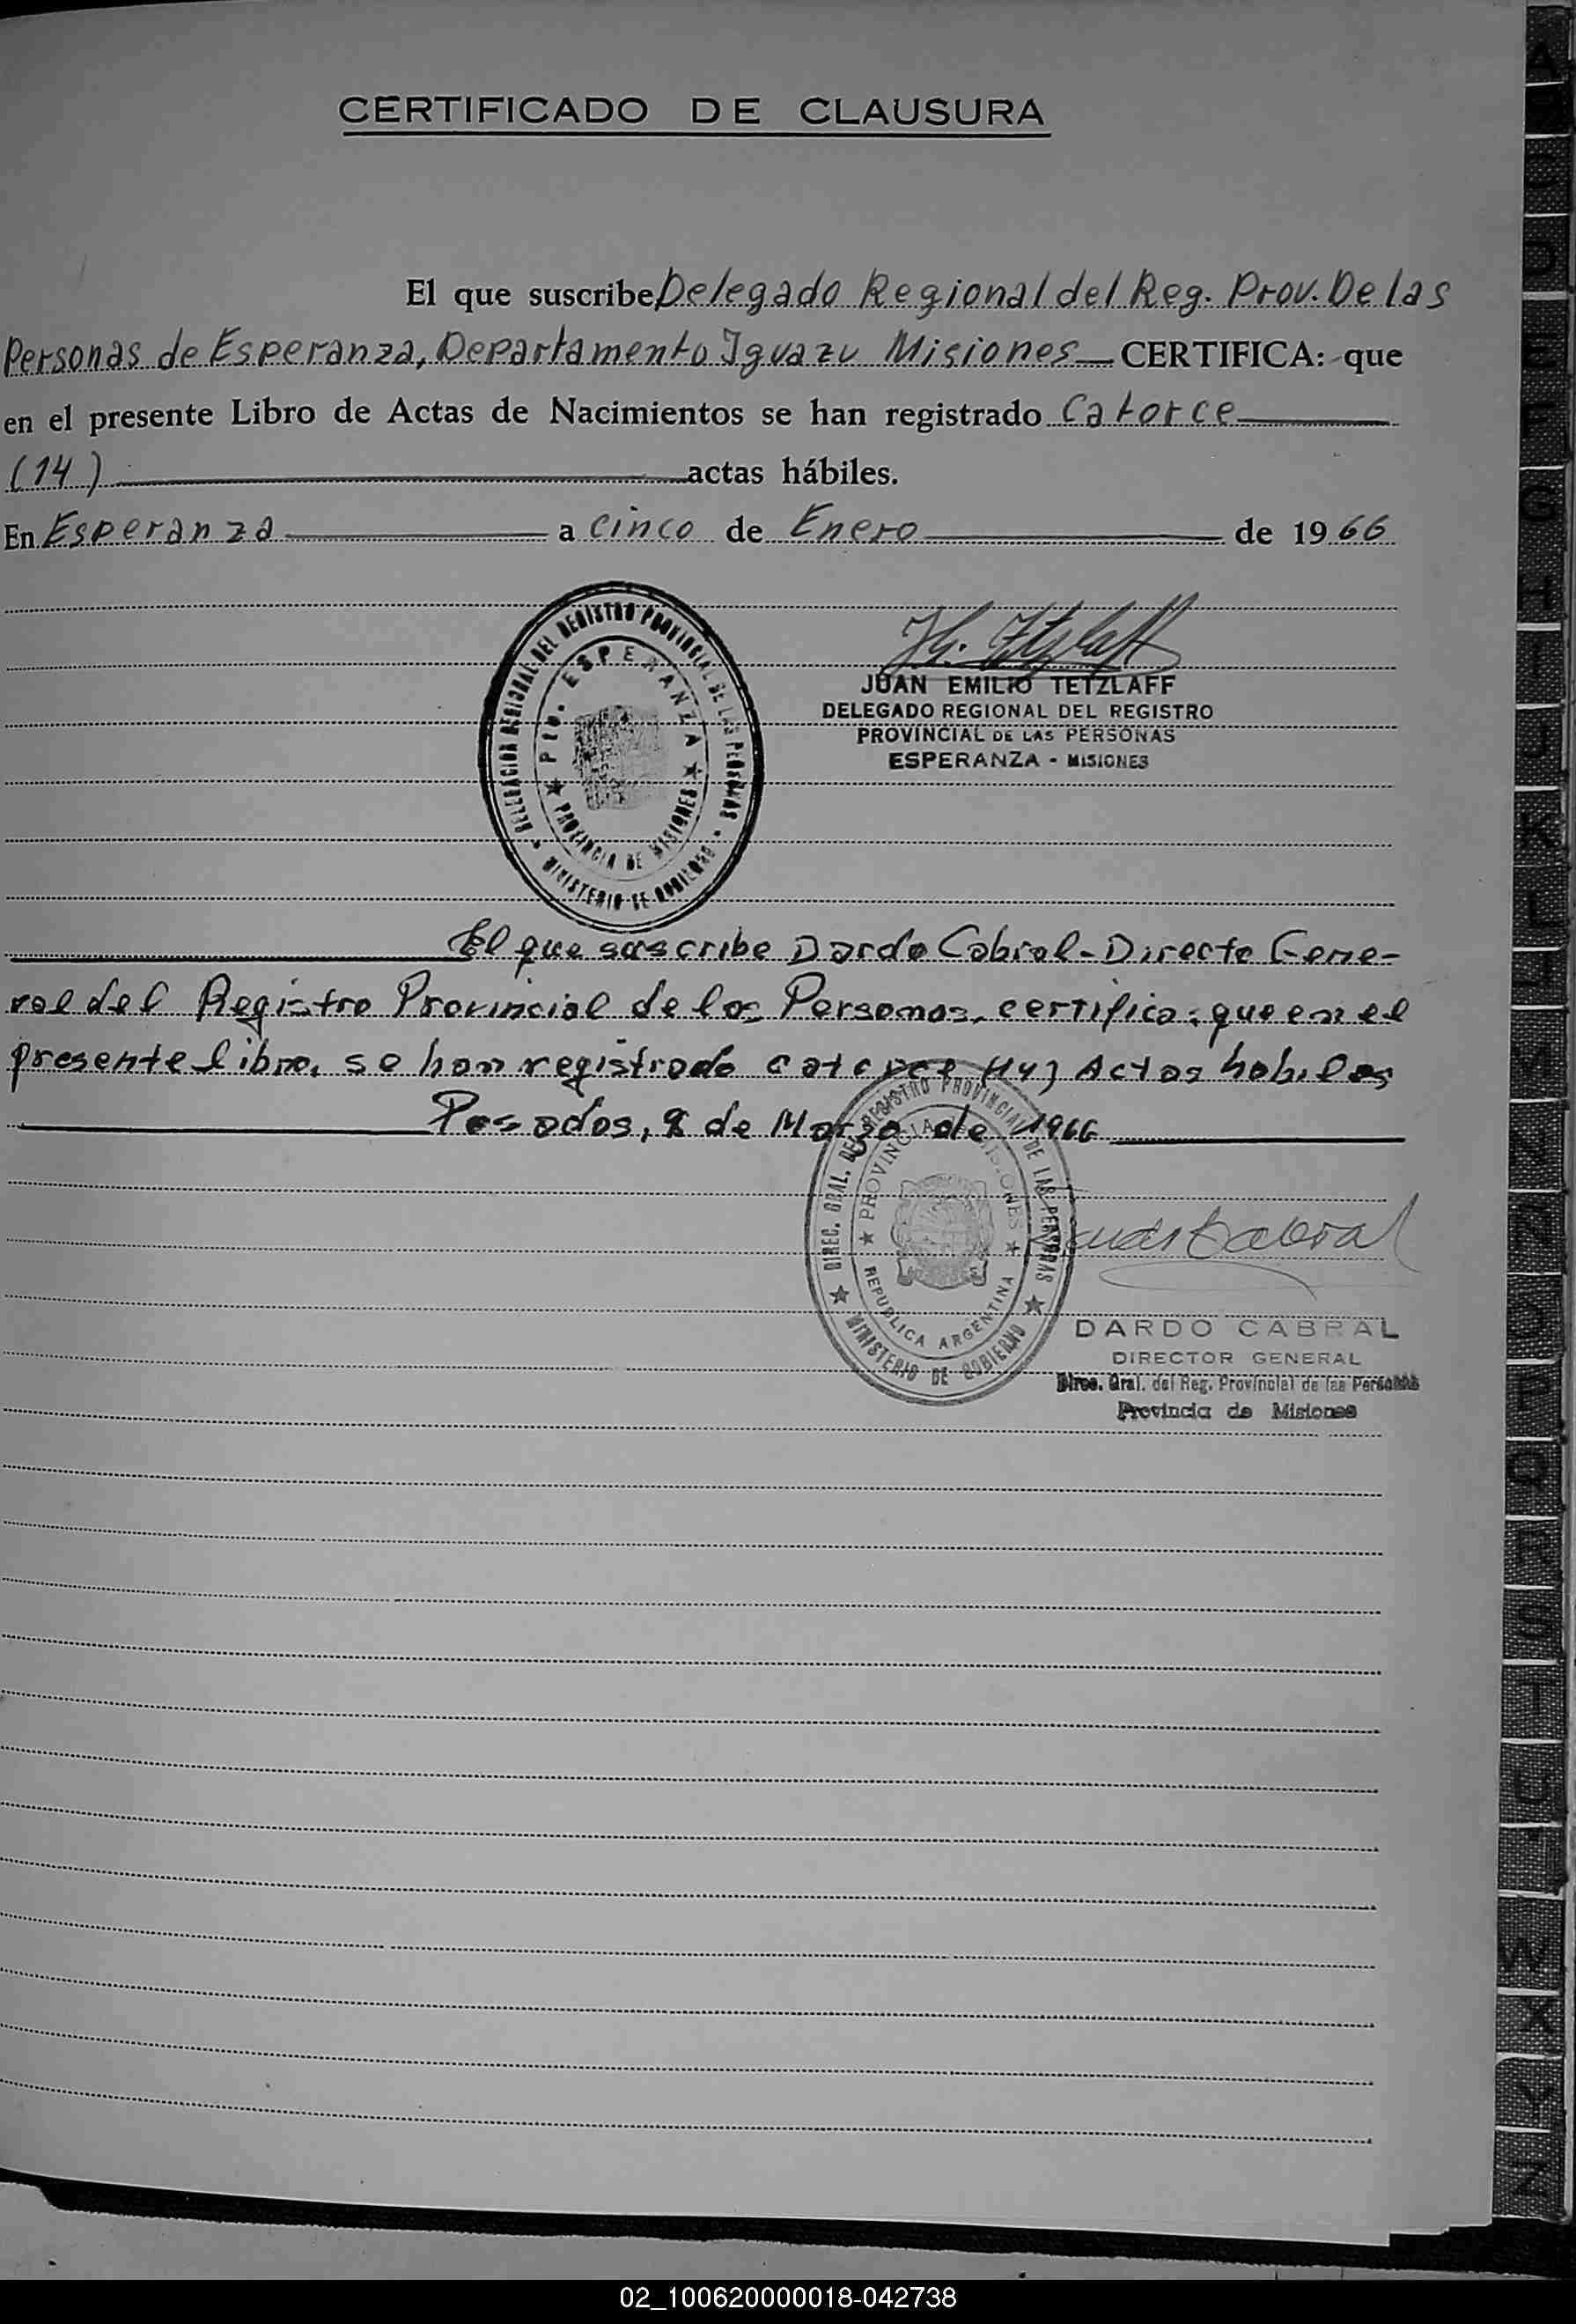 CERTIFICADO DE CLAUSURA
El que suscribe Delegado Regional del Reg. Prov. De las
Personas de Esperanza, Departamento Iguazu Misiones CERTIFICA: que
en el presente Libro de Actas de Nacimientos se han registrado Catorce
(14) actas hábiles.
En Esperanza a Cinco de Enero de 1966
DELEGACION REGIONAL DEL REGISTRO PROVINCIAL DE LAS PERSONAS
PTO. ESPERANZA
PROVINCIA DE MISIONES
MINISTERIO DE GOBIERNO
JUAN EMILIO TETZLAFF
DELEGADO REGIONAL DEL REGISTRO
PROVINCIAL DE LAS PERSONAS
ESPERANZA - MISIONES
El que suscribe Dardo Cabral - Directo Gene-
ral del Registro Provincial de las Personas, certifica: que en el
presente libro, se han registrado catorce (14) Actas habiles
Posadas, 8 de Marzo de 1966
DIREC. GRAL. DEL REGISTRO PROVINCIAL DE LAS PERSONAS
PROVINCIA MISIONES
REPUBLICA ARGENTINA
MINISTERIO DE GOBIERNO
DARDO CABRAL
DIRECTOR GENERAL
Direc. Gral. del Reg. Provincial de las Personas
Provincia de Misiones
A
C
D
E
F
G
H
I
J
K
L
M
N
O
P
Q
R
S
T
U
W
X
Y
Z
02_100620000018-042738